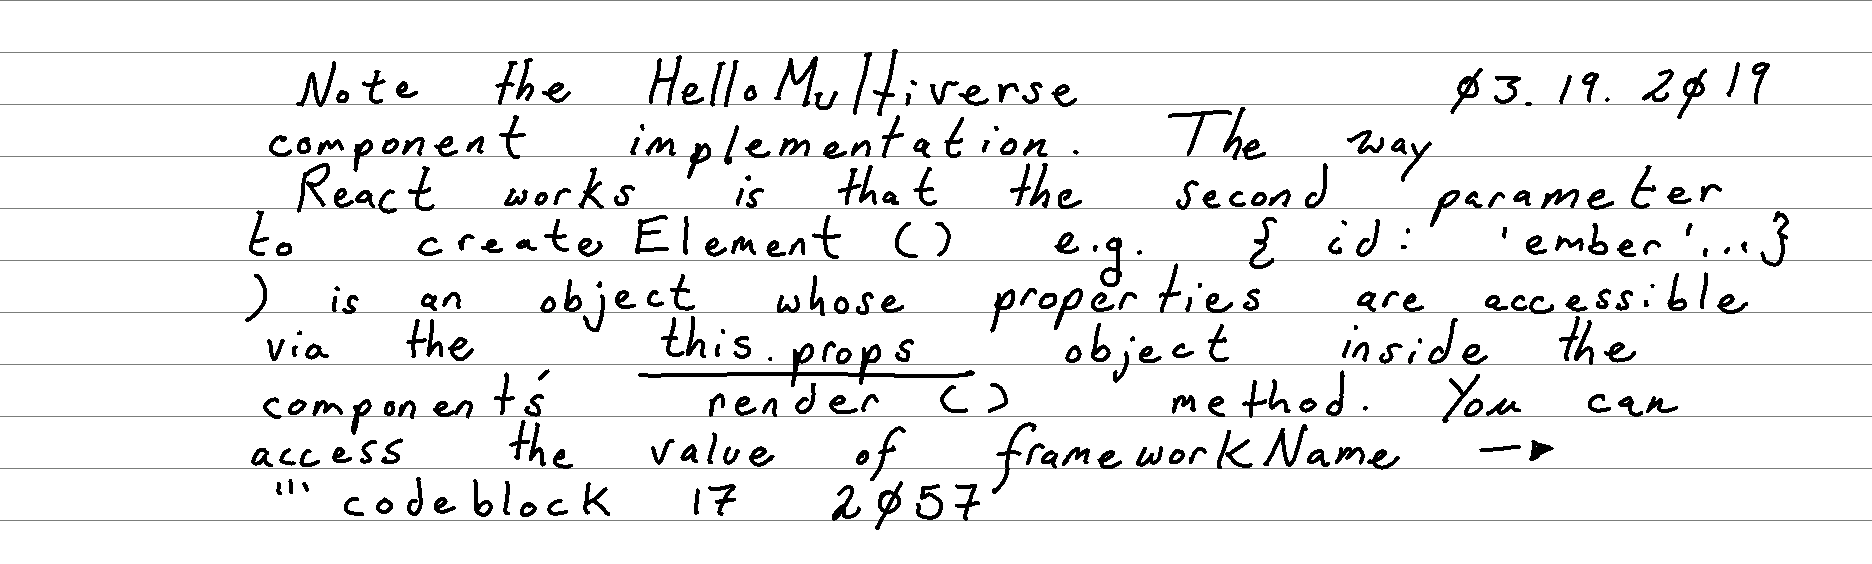 Note the HelloMultiverse ø3.19.2ø19
component implementation. The way
React works is that the second parameter
to createElement () e.g. { id: 'ember'...}
) is an object whose properties are accessible
via the this.props object inside the
component's render () method. You can
access the value of frameworkName →
''' codeblock 17 2ø57